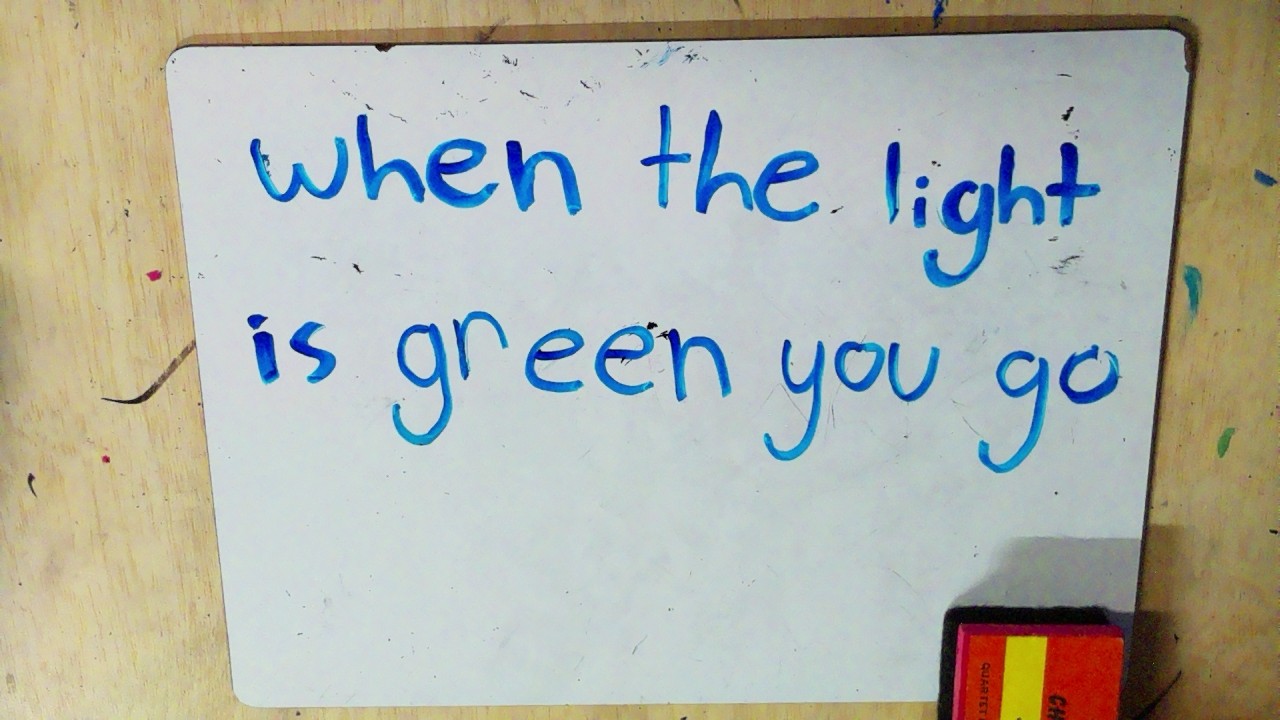 when the light
is green you go
QUARTET